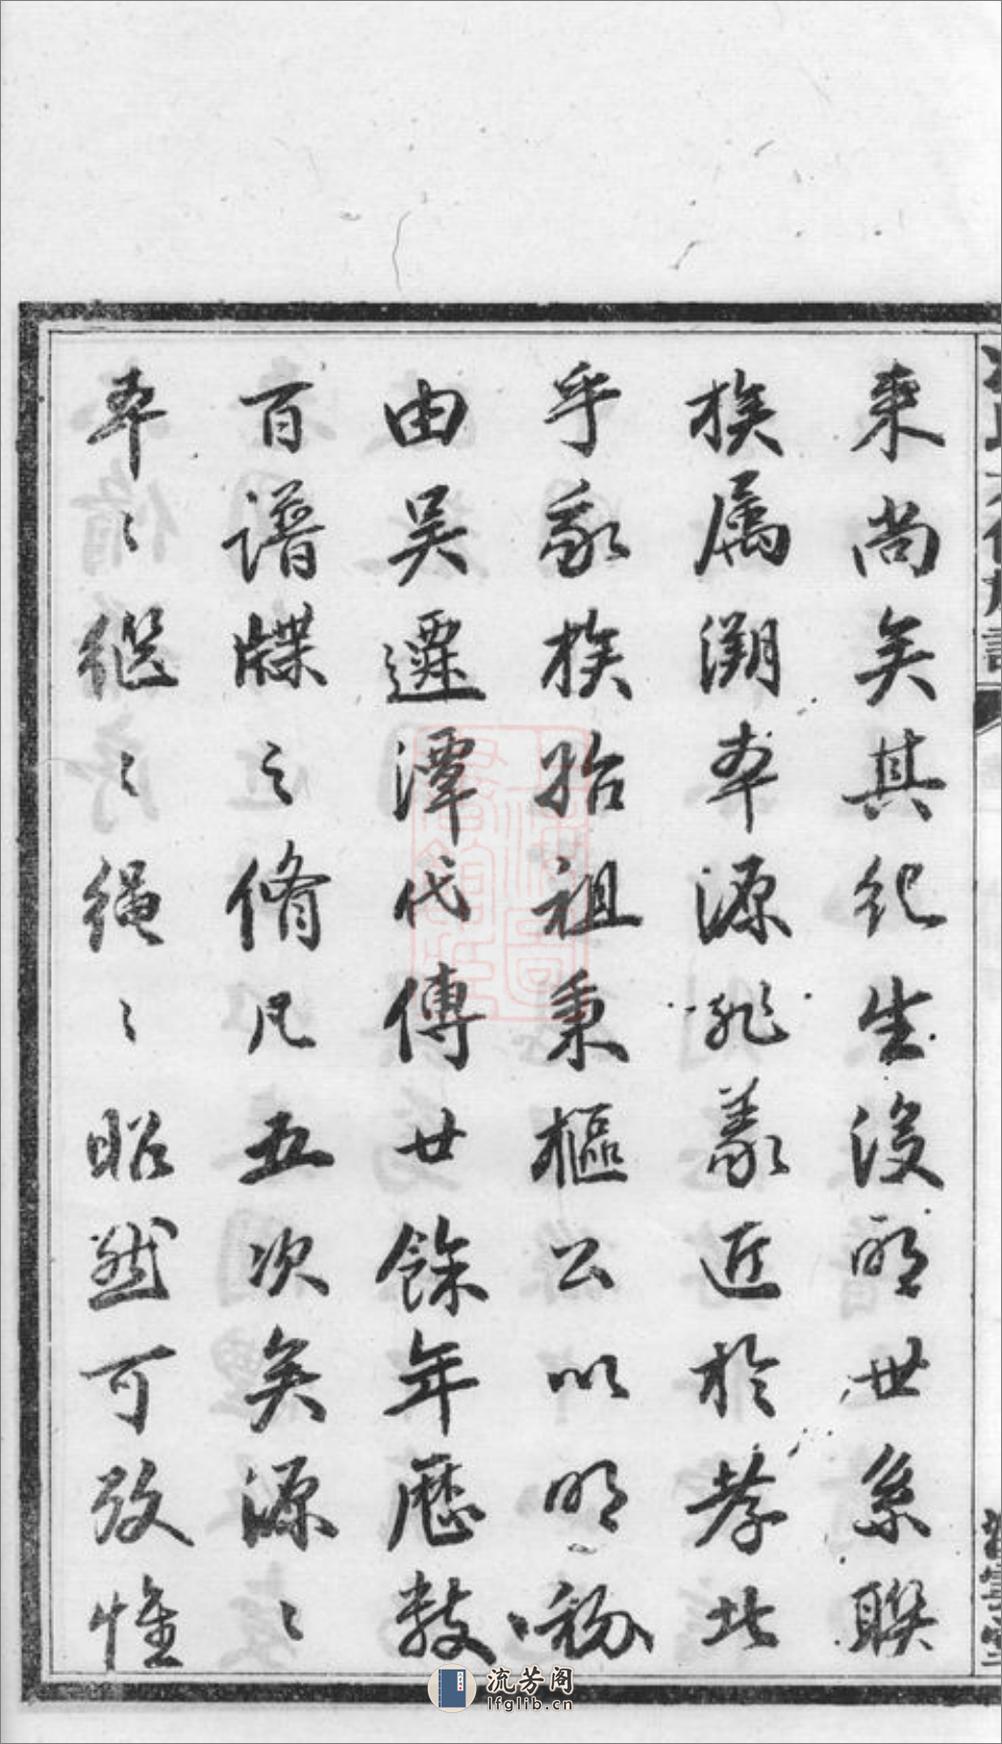 來尚矣其紀生沒明世系聯
族屬溯本源非義近於孝此
乎我族始祖秉樞公以明初
由吳遷潭代傳廿餘年歷數
百譜牒之脩凡五次矣源〻
本〻繼〻繩〻昭然可攷惟
流芳阁
lfglib.cn